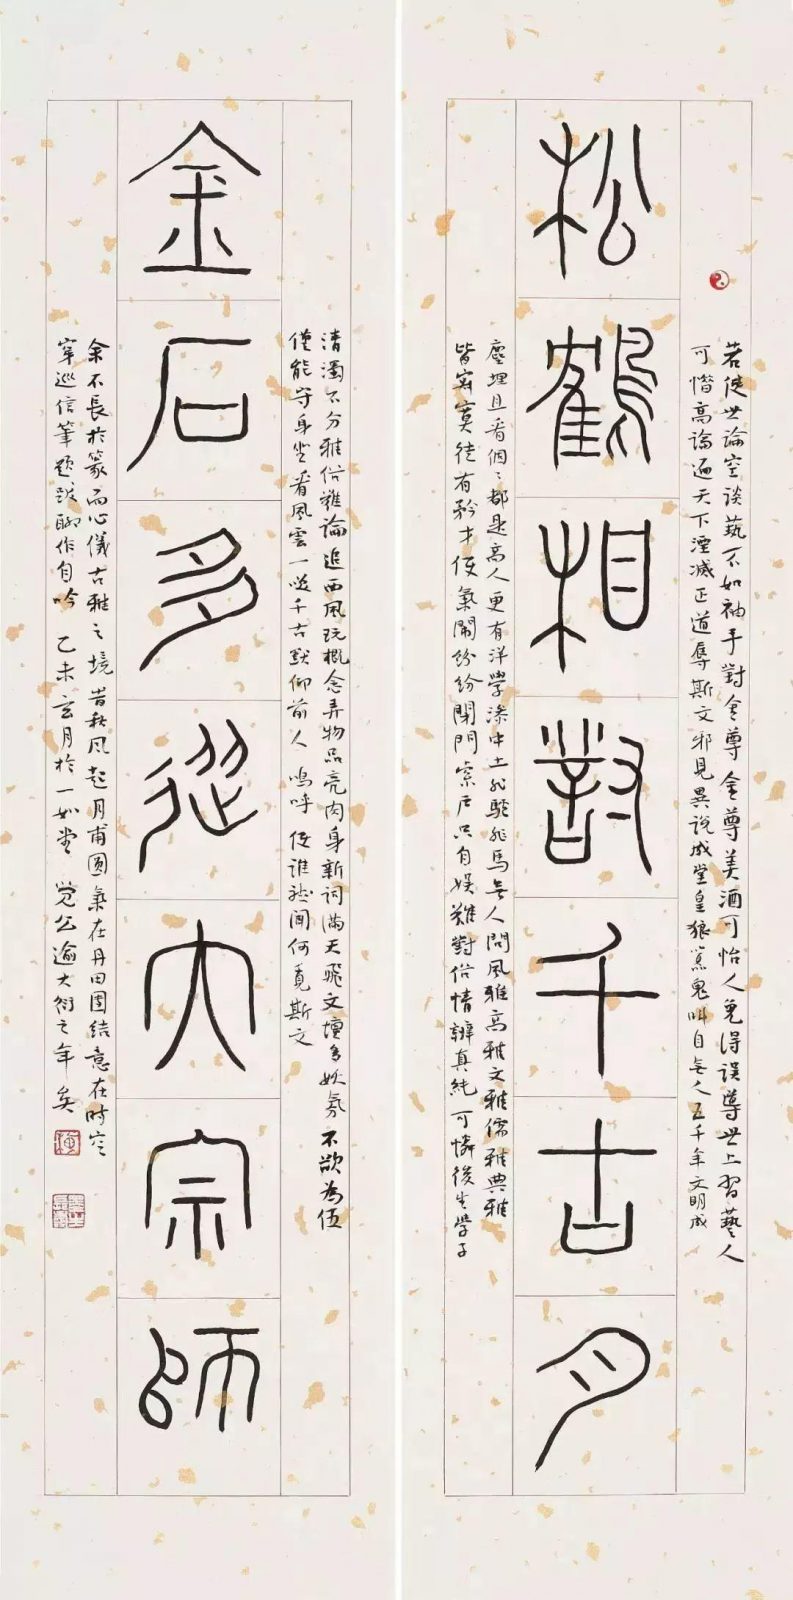 若使世論空談藝不如袖手對金尊金尊美酒可怡人免得误導世上習藝人
可惜高論遍天下湮滅正道辱斯文邪見異說成堂皇狼鬼叫自無人五千年文明成
松鶴相對千古月
塵埋且看個〻都是高人更有洋學漆中土非驢非馬無人問風雅高雅文雅儒雅典雅
皆寂寞徒有矜才使氣鬧紛紛閉門索戶只自娛難對俗情辯真純可憐後生學子
清濁不分雅俗難論追西風玩概念弄物品亮肉身新詞滿天飛文壇多妖氛不欲為伍
僅能守身坐看風雲一嘆千古默仰前人嗚呼使誰聞何覓斯文
金石多從大宗師
余不長於篆而心儀古雅之境昔秋風起月甫圓氣在丹田團結意在時空
穿巡信筆題跋聊作自吟乙未玄月於一如堂覺公逾大衍之年矣